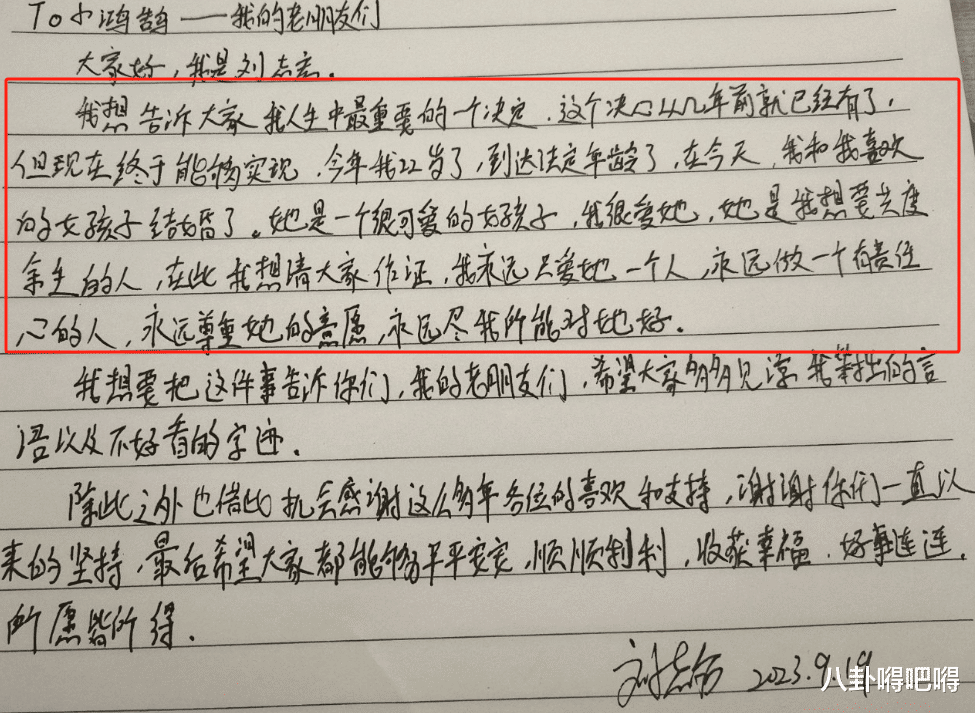 To小鸿鹄——我的老朋友们
大家好,我是刘志宏.
我想告诉大家我人生中最重要的一个决定.这个决心从几年前就已经有了,
但现在终于能够实现.今年我22岁了,到达法定年龄了,在今天,我和我喜欢
的女孩子结婚了.她是一个很可爱的女孩子,我很爱她,她是我想要共度
余生的人,在此我想请大家作证,我永远只爱她一个人,永远做一个有责任
心的人,永远尊重她的意愿,永远尽我所能对她好.
我想要把这件事告诉你们,我的老朋友们,希望大家多多见谅我笨拙的言
语以及不好看的字迹.
除此之外也借此机会感谢这么多年各位的喜欢和支持,谢谢你们一直以
来的坚持,最后希望大家都能够平平安安,顺顺利利,收获幸福.好事连连,
所愿皆所得.
刘志宏 2023.9.19
八卦嘚吧嘚